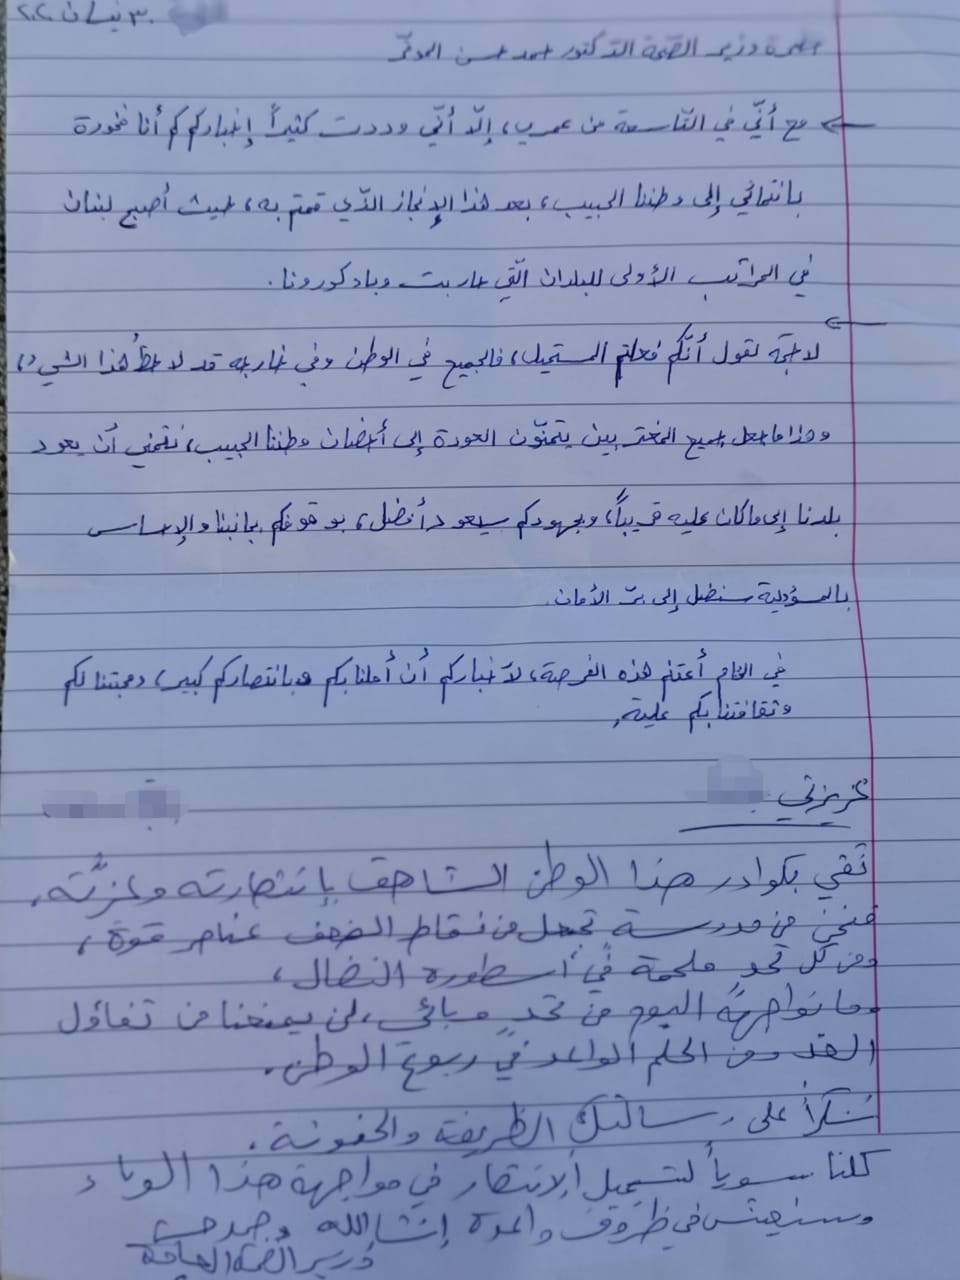 ٣٠ نيسان ٢٠٢٠
حضرة وزير الصّحة الدّكتور حمد حسن الموقّر
مع أنّي في التّاسعة من عمري، إلّا أنّي وددت كثيراً إخباركم كم أنا فخورة
بانتمائي إلى وطننا الحبيب، بعد هذا الإنجاز الّذي قمتم به، حيث أصبح لبنان
في المراتب الأولى للبلدان الّتي حاربت وباء كورونا.
لا حجّة لقول أنّكم فعلتم المستحيل، فالجميع في الوطن وفي خارجه قد لاحظ هذا الشيء،
وهذا ما جعل جميع المغتربين يتمنّون العودة إلى أحضان وطننا الحبيب، نتمنى أن يعود
بلدنا إلى ما كان عليه قريباً، وبجهودكم سيعود أفضل، بوقوفكم بجانبنا والإحساس
بالمسؤولية سنصل إلى برّ الأمان.
في الختام أغتنم هذه الفرصة، لأخباركم أن أملنا بكم وبانتصاركم كبير، ومحبتنا لكم
وثقافتنا بكم علية.
عزيزتي
ثقي بكوادر هذا الوطن الشاهق بإنتصارته وعزّته،
فنحن من مدرسة تجعل من نقاط الضعف عناصر قوة،
ومن كل تحدٍ ملحمة في أسطورة النضال،
وما نواجهه اليوم من تحدٍ وبائي، لن يمنعنا من تفاؤل
الغد ومن الحلم الواعد في ربوع الوطن.
شكراً على رسالتك الظريفة والحنونة.
كلنا سوياً لتسجيل الإنتصار في مواجهة هذا الوباء
وسنعيش في ظروف واعدة إنشالله
د. حمد حسن
وزير الصحة العامة